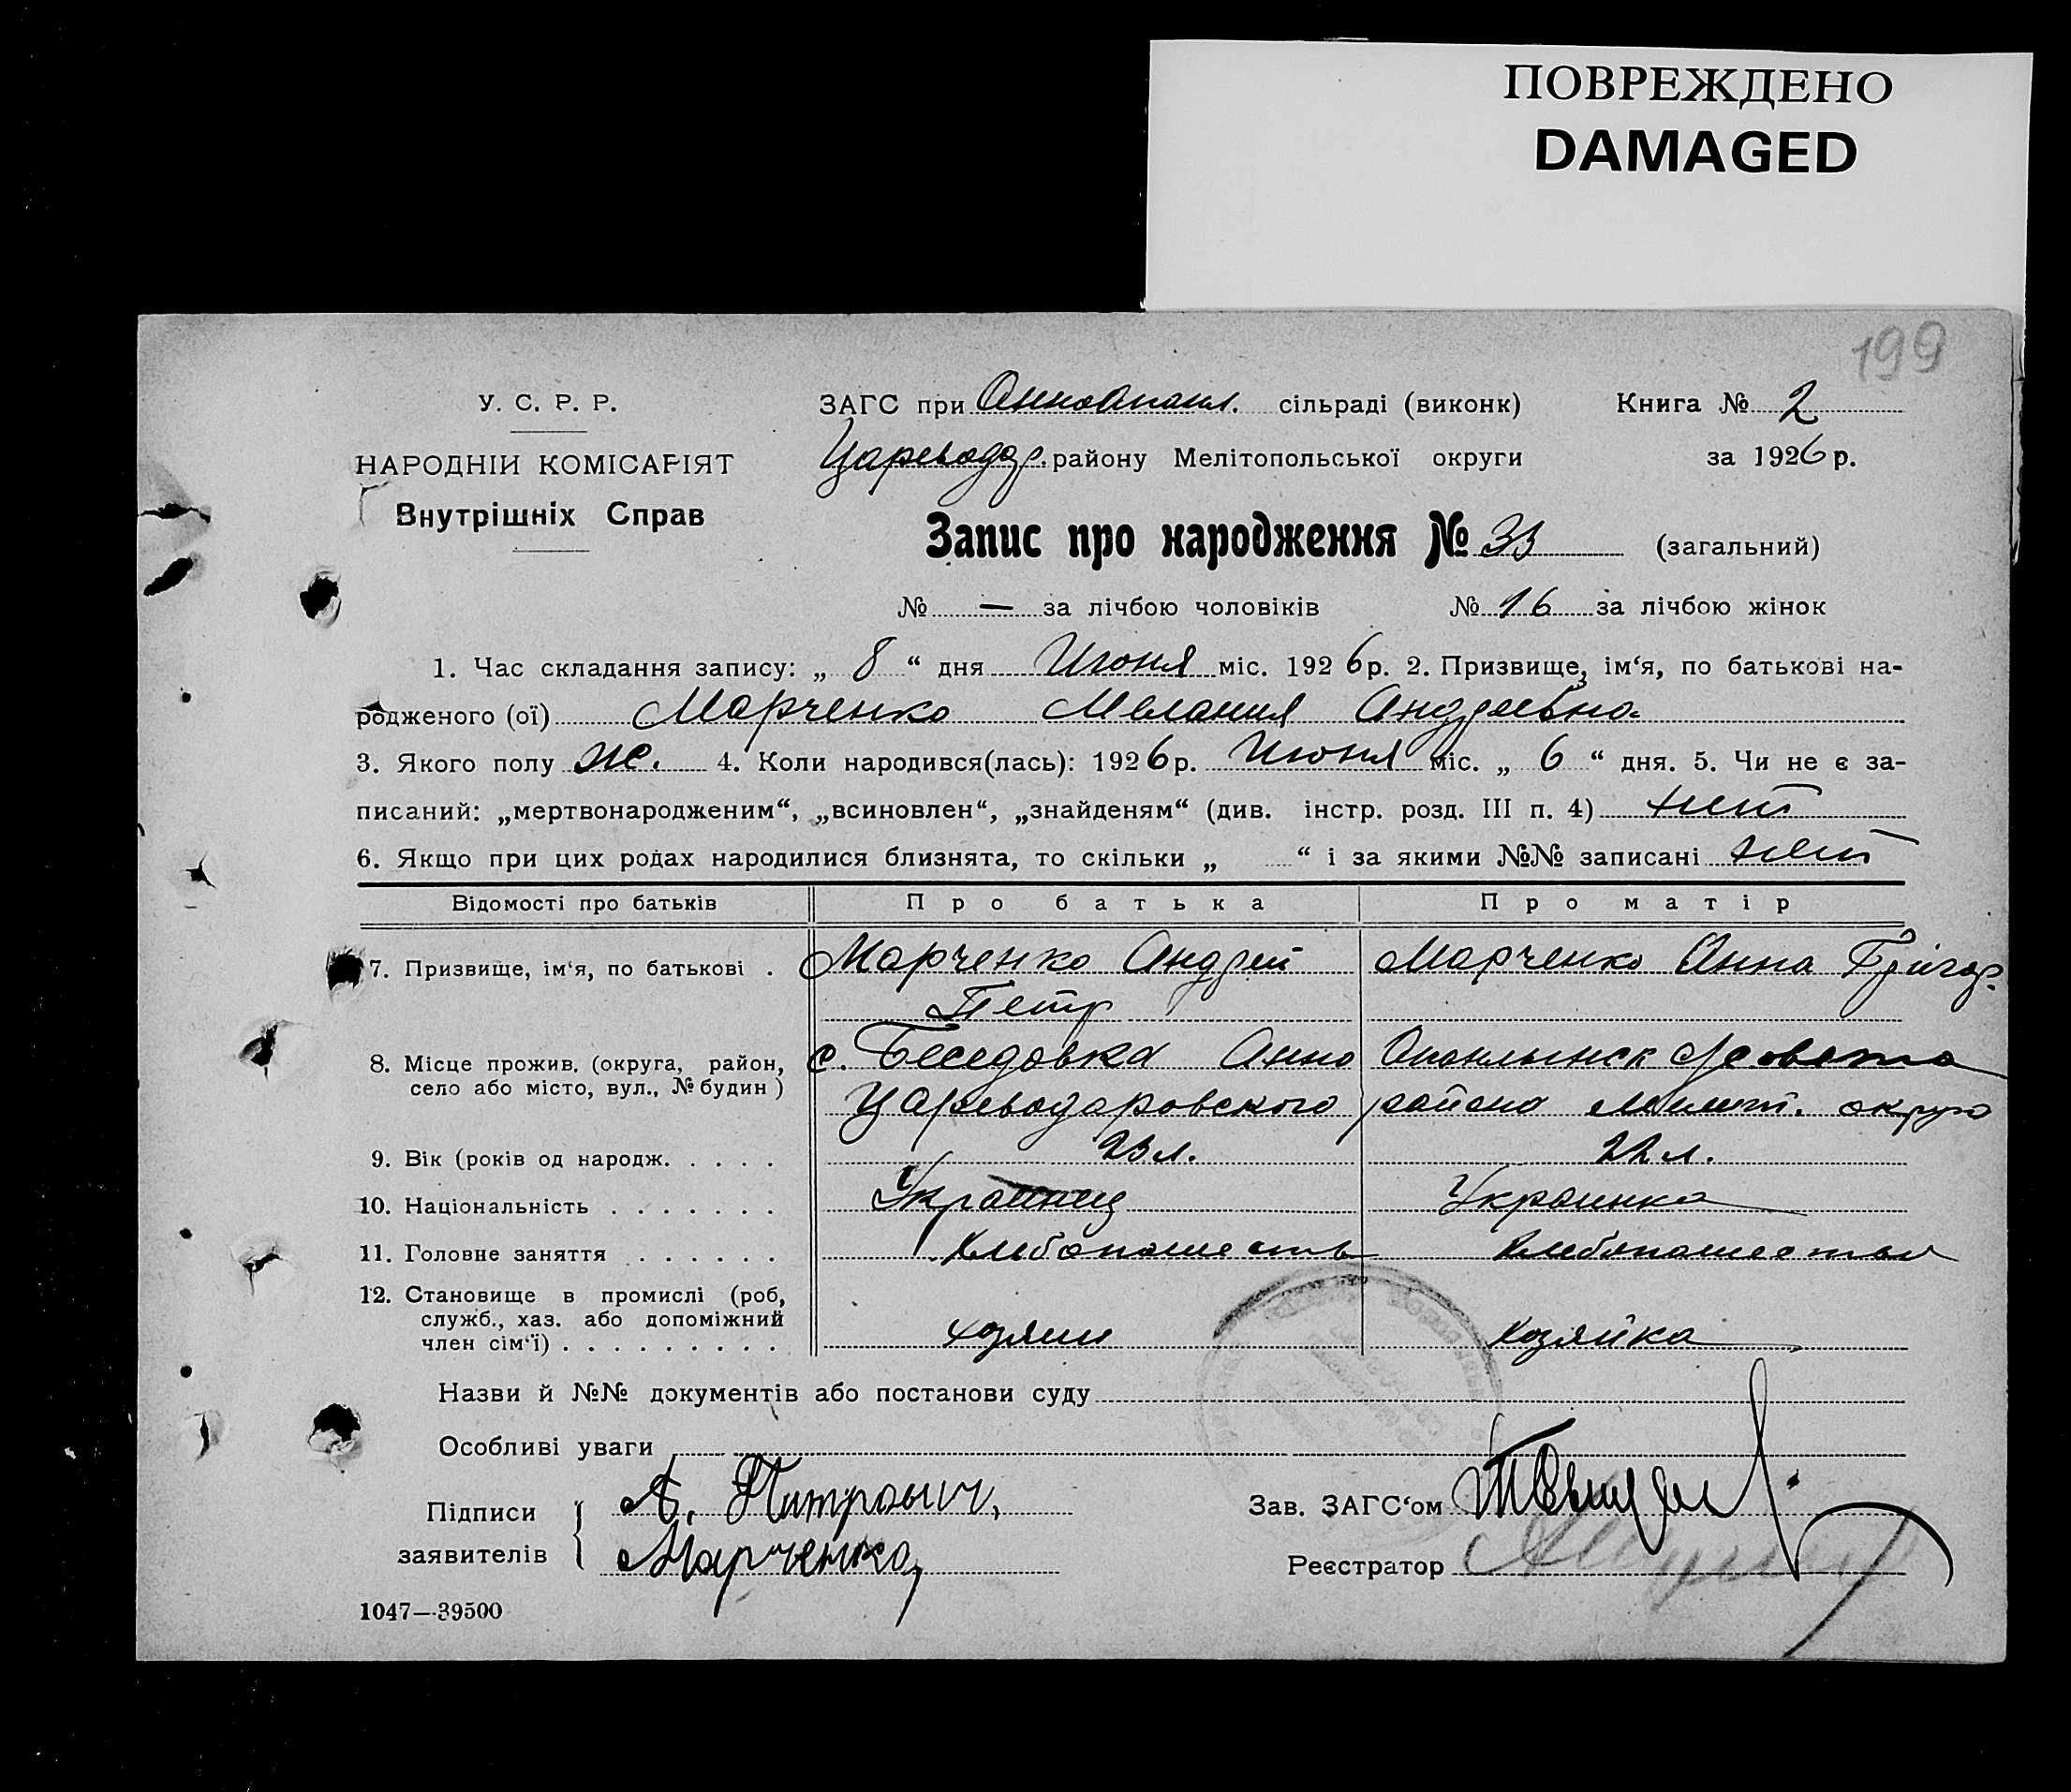 ПОВРЕЖДЕНО
DAMAGED
199
У. С. Р. Р.
НАРОДНІЙ КОМІСАРІЯТ
Внутрішніх Справ
ЗАГС при Анноопанл. сільраді (виконк) Книга № 2
Цареводар. району Мелітопольської округи за 1926 р.
Запис про народження № 33 (загальний)
№ — за лічбою чоловіків № 16 за лічбою жінок
1. Час складання запису: „ 8 “ дня Июня міс. 1926 р. 2. Призвище, ім‘я, по батькові на-
родженого (ої) Марченко Мелания Андреевна
3. Якого полу ж. 4. Коли народився(лась): 1926 р. Июня міс. „ 6 “ дня. 5. Чи не є за-
писаний: „мертвонародженим“, „всиновлен“, „знайденям“ (див. інстр. розд. III п. 4) нет
6. Якщо при цих родах народилися близнята, то скільки „ “ і за якими №№ записані нет
Відомості про батьків Про батька Про матір
7. Призвище, ім‘я, по батькові . Марченко Андрей Марченко Анна Григор.
Петр
8. Місце прожив. (округа, район, с. Беседовка Анно Опанлынск сельсовета
село або місто, вул., № будин) Цареводаровского района Мелит. округа
9. Вік (років од народж. . . . . 23 л. 22 л.
10. Національність . . . . . . . Украинец Украинка
11. Головне заняття . . . . . . Хлебопашеств Хлебопашество
12. Становище в промислі (роб,
служб., хаз. або допоміжний
член сім‘ї) . . . . . . . . . хозяин хозяйка
Назви й №№ документів або постанови суду
Особливі уваги
Підписи А. Питрович,
заявителів Марченко,
Зав. ЗАГС‘ом
Реєстратор
1047—39500